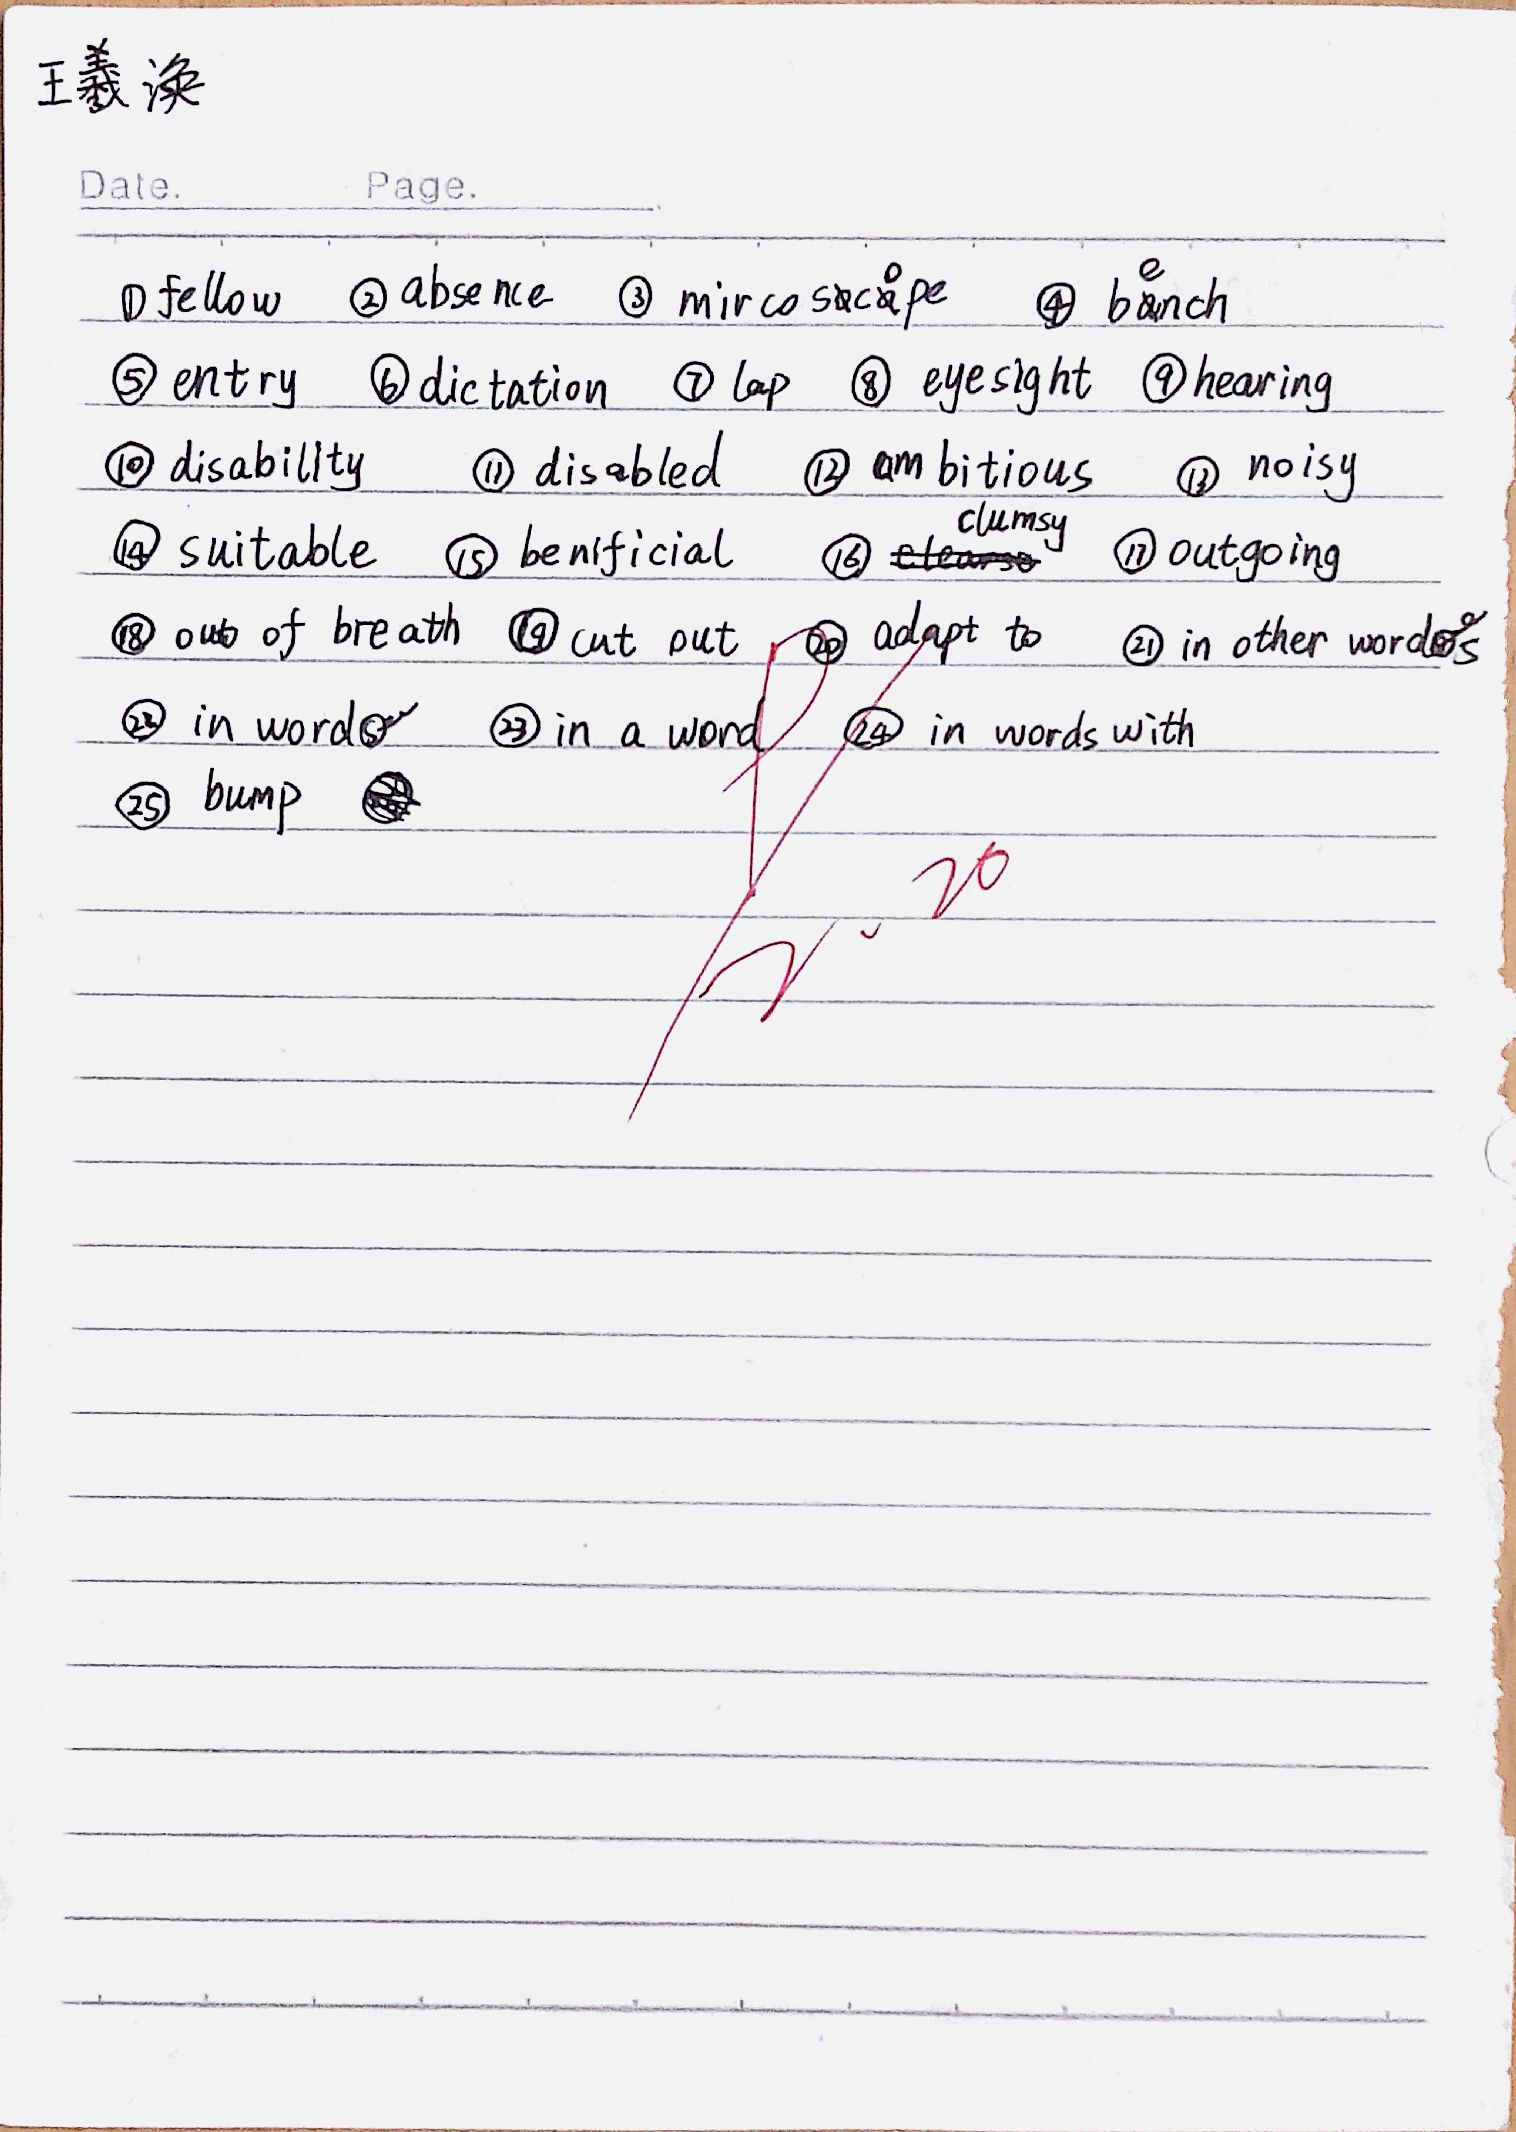 王羲涣
Date. Page.
① fellow ② absence ③ mircoscope ④ bench
⑤ entry ⑥ dictation ⑦ lap ⑧ eyesight ⑨ hearing
⑩ disability ⑪ disabled ⑫ ambitious ⑬ noisy
⑭ suitable ⑮ benificial ⑯ clumsy ⑰ outgoing
⑱ out of breath ⑲ cut out ⑳ adapt to ㉑ in other words
㉒ in words ㉓ in a word ㉔ in words with
㉕ bump